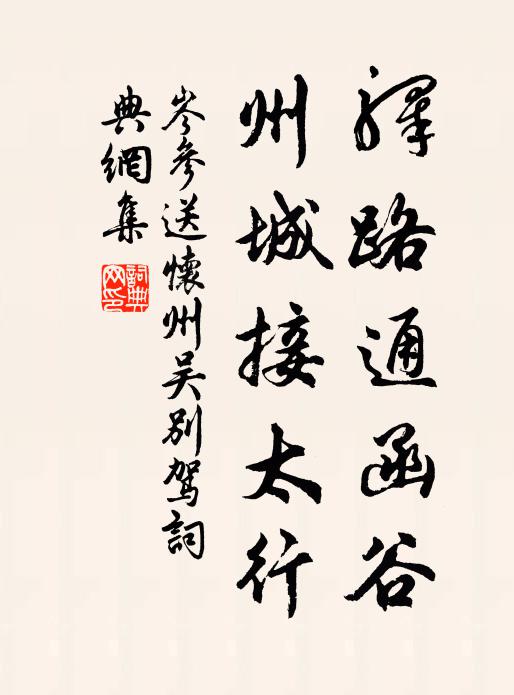 驛路通函谷
州城接太行
岑參送懷州吳別駕詞
典網集
詞典網印